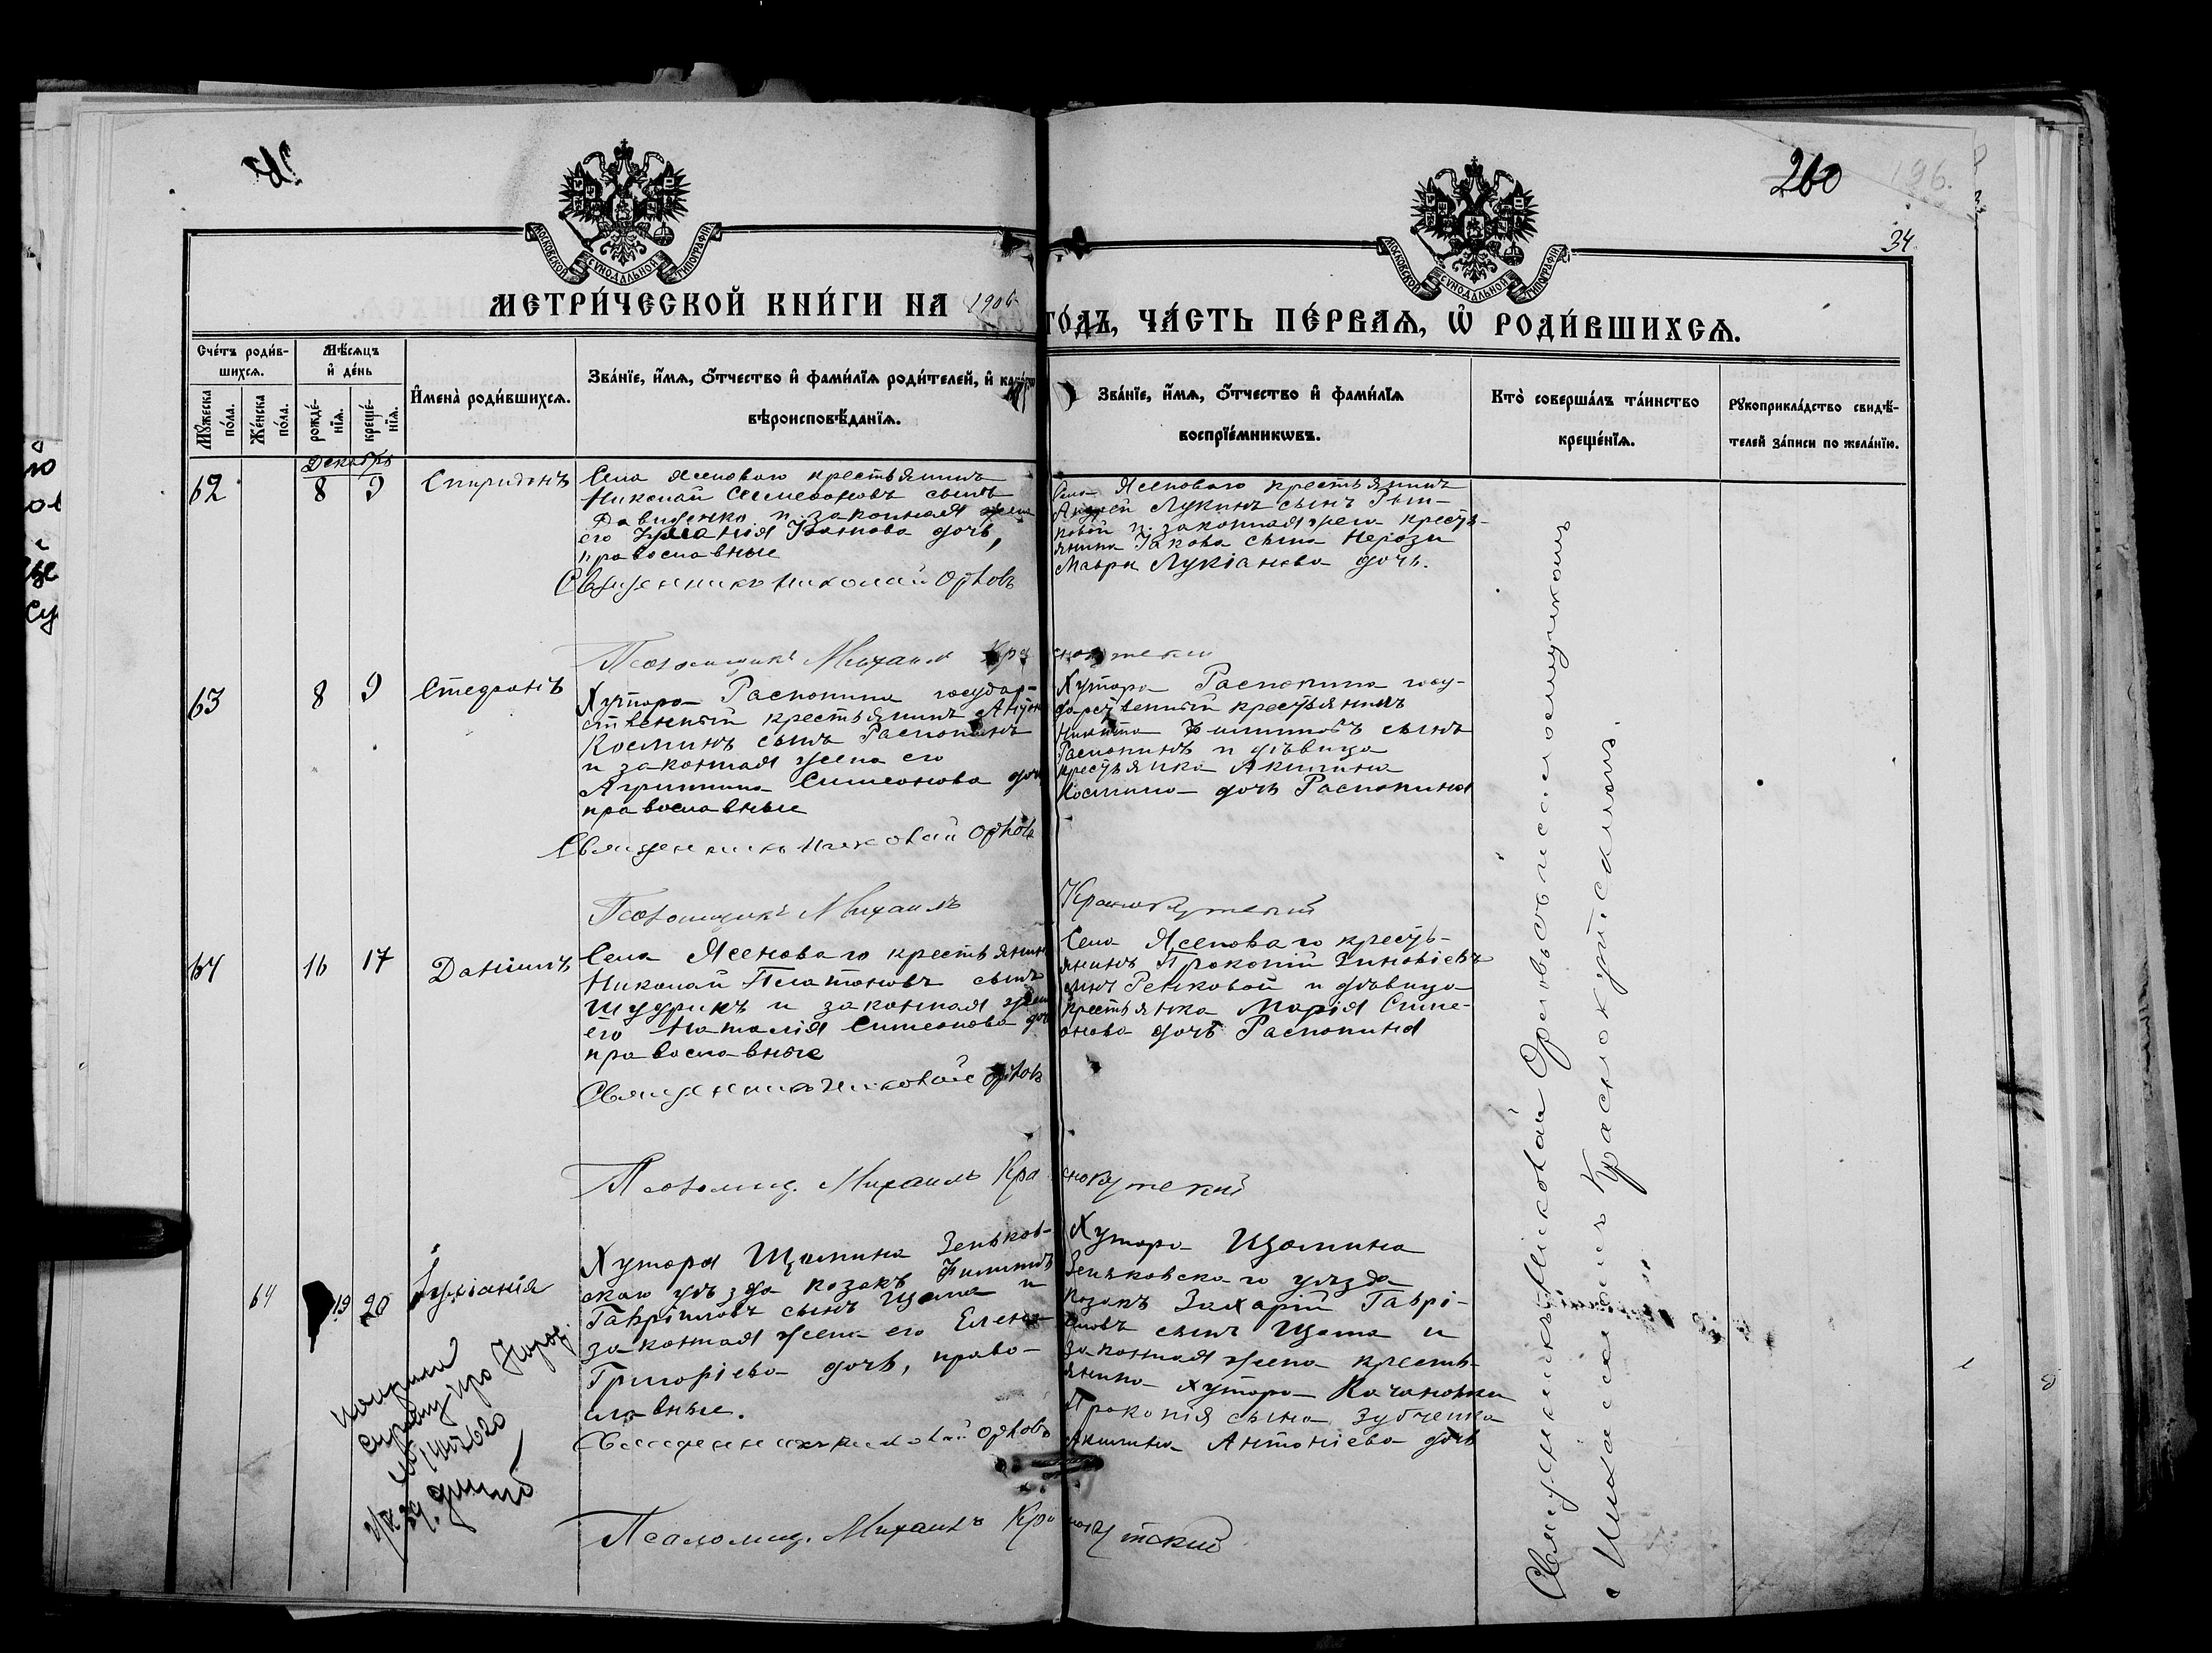 260
196.
34.
МОСКОВСКОЙ СѴНОДАЛЬНОЙ ТИПОГРАФІИ
МОСКОВСКОЙ СѴНОДАЛЬНОЙ ТИПОГРАФІИ
МЕТРИ́ЧЕСКОЙ КНИ́ГИ НА 1906
ГО́ДЪ, ЧА́СТЬ ПЕ́РВАѦ, Ѡ҆ РОДИ́ВШИХСѦ.
Сче́тъ роди́в-
шихсѧ.
Мꙋ́жеска по́ла.
Же́нска по́ла.
Мѣ́сѧцъ
и҆ де́нь
рожде́-
нїѧ.
креще́-
нїѧ.
И҆мена̀ роди́вшихсѧ.
Зва́нїе, и҆́мѧ, ѻ҆́тчество и҆ фами́лїѧ роди́телей, и҆
вѣроисповѣ́данїѧ.
Зва́нїе, и҆́мѧ, ѻ҆́тчество и҆ фами́лїѧ
воспрїе́мникѡвъ.
Кто̀ соверша́лъ та́инство
креще́нїѧ.
Рꙋкоприкла́дство свидѣ́-
телей за́писи по жела́нїю.
Декабрь
62 8 9 Спиридонъ
Села Ясеноваго крестьянинъ
Николай Симеоновъ сынъ
Давиденко и законная жена
его Іванова дочь,
православные
Священникъ Николай Орловъ
Псаломщикъ Михаилъ Краснокутскій
Села Ясеноваго крестьянинъ
Андрей Лукинъ сынъ
ковой и законная жена кресть-
янина Іакова сына Нерози
Мавра Лукіанова дочь.
63 8 9 Стефанъ
Хутора Распопина государ-
ственный крестьянинъ
Косминъ сынъ Распопинъ
и законная жена его
Агриппина Симеонова дочь
православные
Священникъ Николай Орловъ
Псаломщикъ Михаилъ Краснокутскій
Хутора Распопина госу-
дарственный крестьянинъ
Никита Филипповъ сынъ
Распопинъ и дѣвица
крестьянка Акилина
Космина дочь Распопина
64 16 17 Даніилъ
Села Ясеноваго крестьянинъ
Николай Платоновъ сынъ
Щудрикъ и законная жена
его Наталія Симеонова дочь
православные
Священникъ Николай Орловъ
Псаломщ. Михаилъ Краснокутскій
Села Ясеноваго кресть-
янинъ Прокопій Зиновіевъ
сынъ Репковой и дѣвица
крестьянка Марія Симе-
онова дочь Распопина
64 19 20 Іуліанія
Хутора Щомина Зеньков-
скаго уѣзда козакъ Филиппъ
Гавріиловъ сынъ Щома и
законная жена его Елена
Григоріева дочь, право-
славные.
Священникъ Николай Орловъ
Псаломщ. Михаилъ Краснокутскій
Хутора Щомина
Зеньковскаго уѣзда
козакъ Захарій Гаврі-
иловъ сынъ Щома и
законная жена кресть-
янина хутора Качановки
Прокопія сына Зубченка
Акилина Антоніева дочь
Священникъ Николай Орловъ съ псаломщикомъ
Михаиломъ Краснокутскимъ.